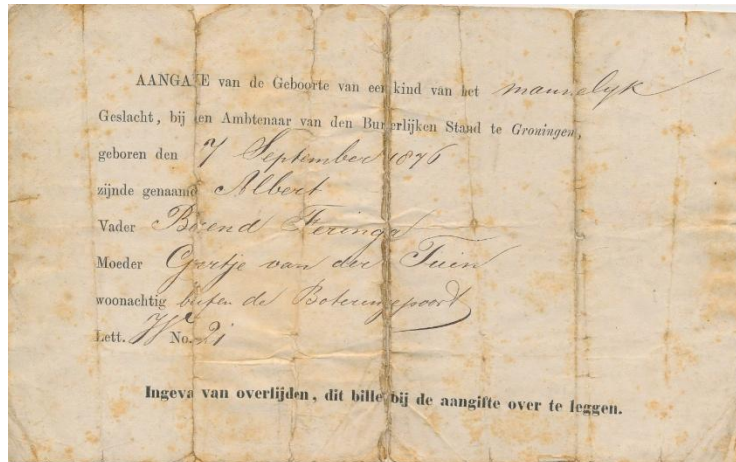 AANGAVE van de Geboorte van een kind van het mannelyk
Geslacht, bij den Ambtenaar van den Burgerlijken Stand te Groningen,
geboren den 7 September 1876
zijnde genaamd Albert
Vader Berend Feringa
Moeder Geertje van der Tuin
woonachtig buiten de Boteringepoort
Lett. W No. 2i
Ingeval van overlijden, dit billet bij de aangifte over te leggen.